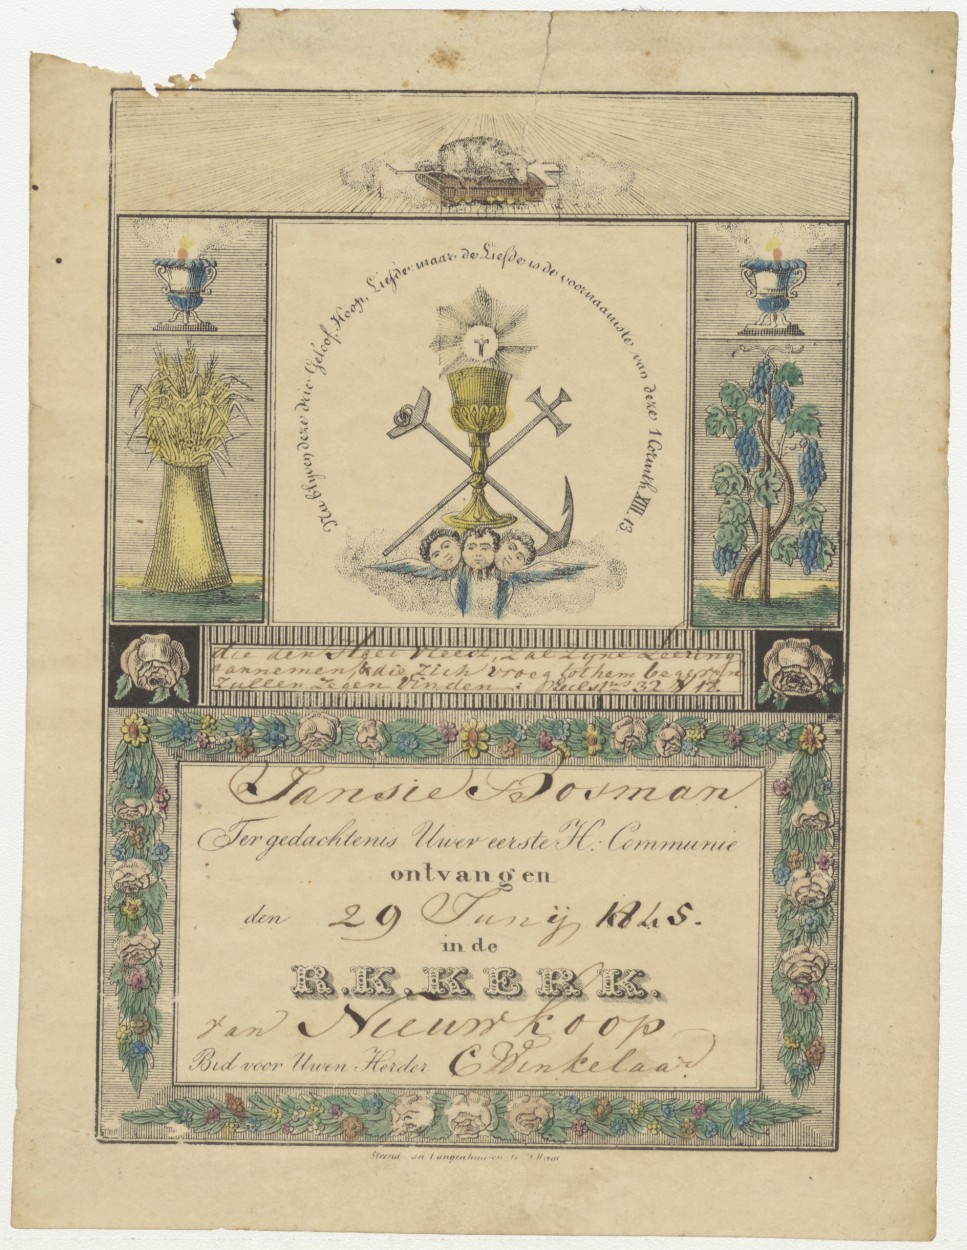 Nu blyven deze drie Geloof, Hoop, Liefde maar de Liefde is de voornaamste van deze 1 Corinth. XIII. 13
die den Heer vreest, zal zyne Leering
aannemen, & die Zich vroeg tot hem begeven
Zullen Zegen Vinden : 32 V 18.
Jansie Bosman.
Ter gedachtenis Uwer eerste H. Communie
ontvangen
den 29 Junij 1845.
in de
R.K.KERK.
van Nieuwkoop
Bid voor Uwen Herder C Winkelaar
Steend. van Langenhuysen te 's Hage